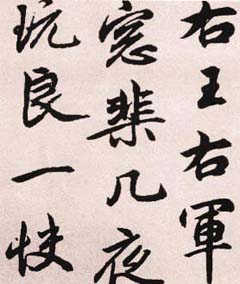 右王右軍
窓棐几夜
玩良一快